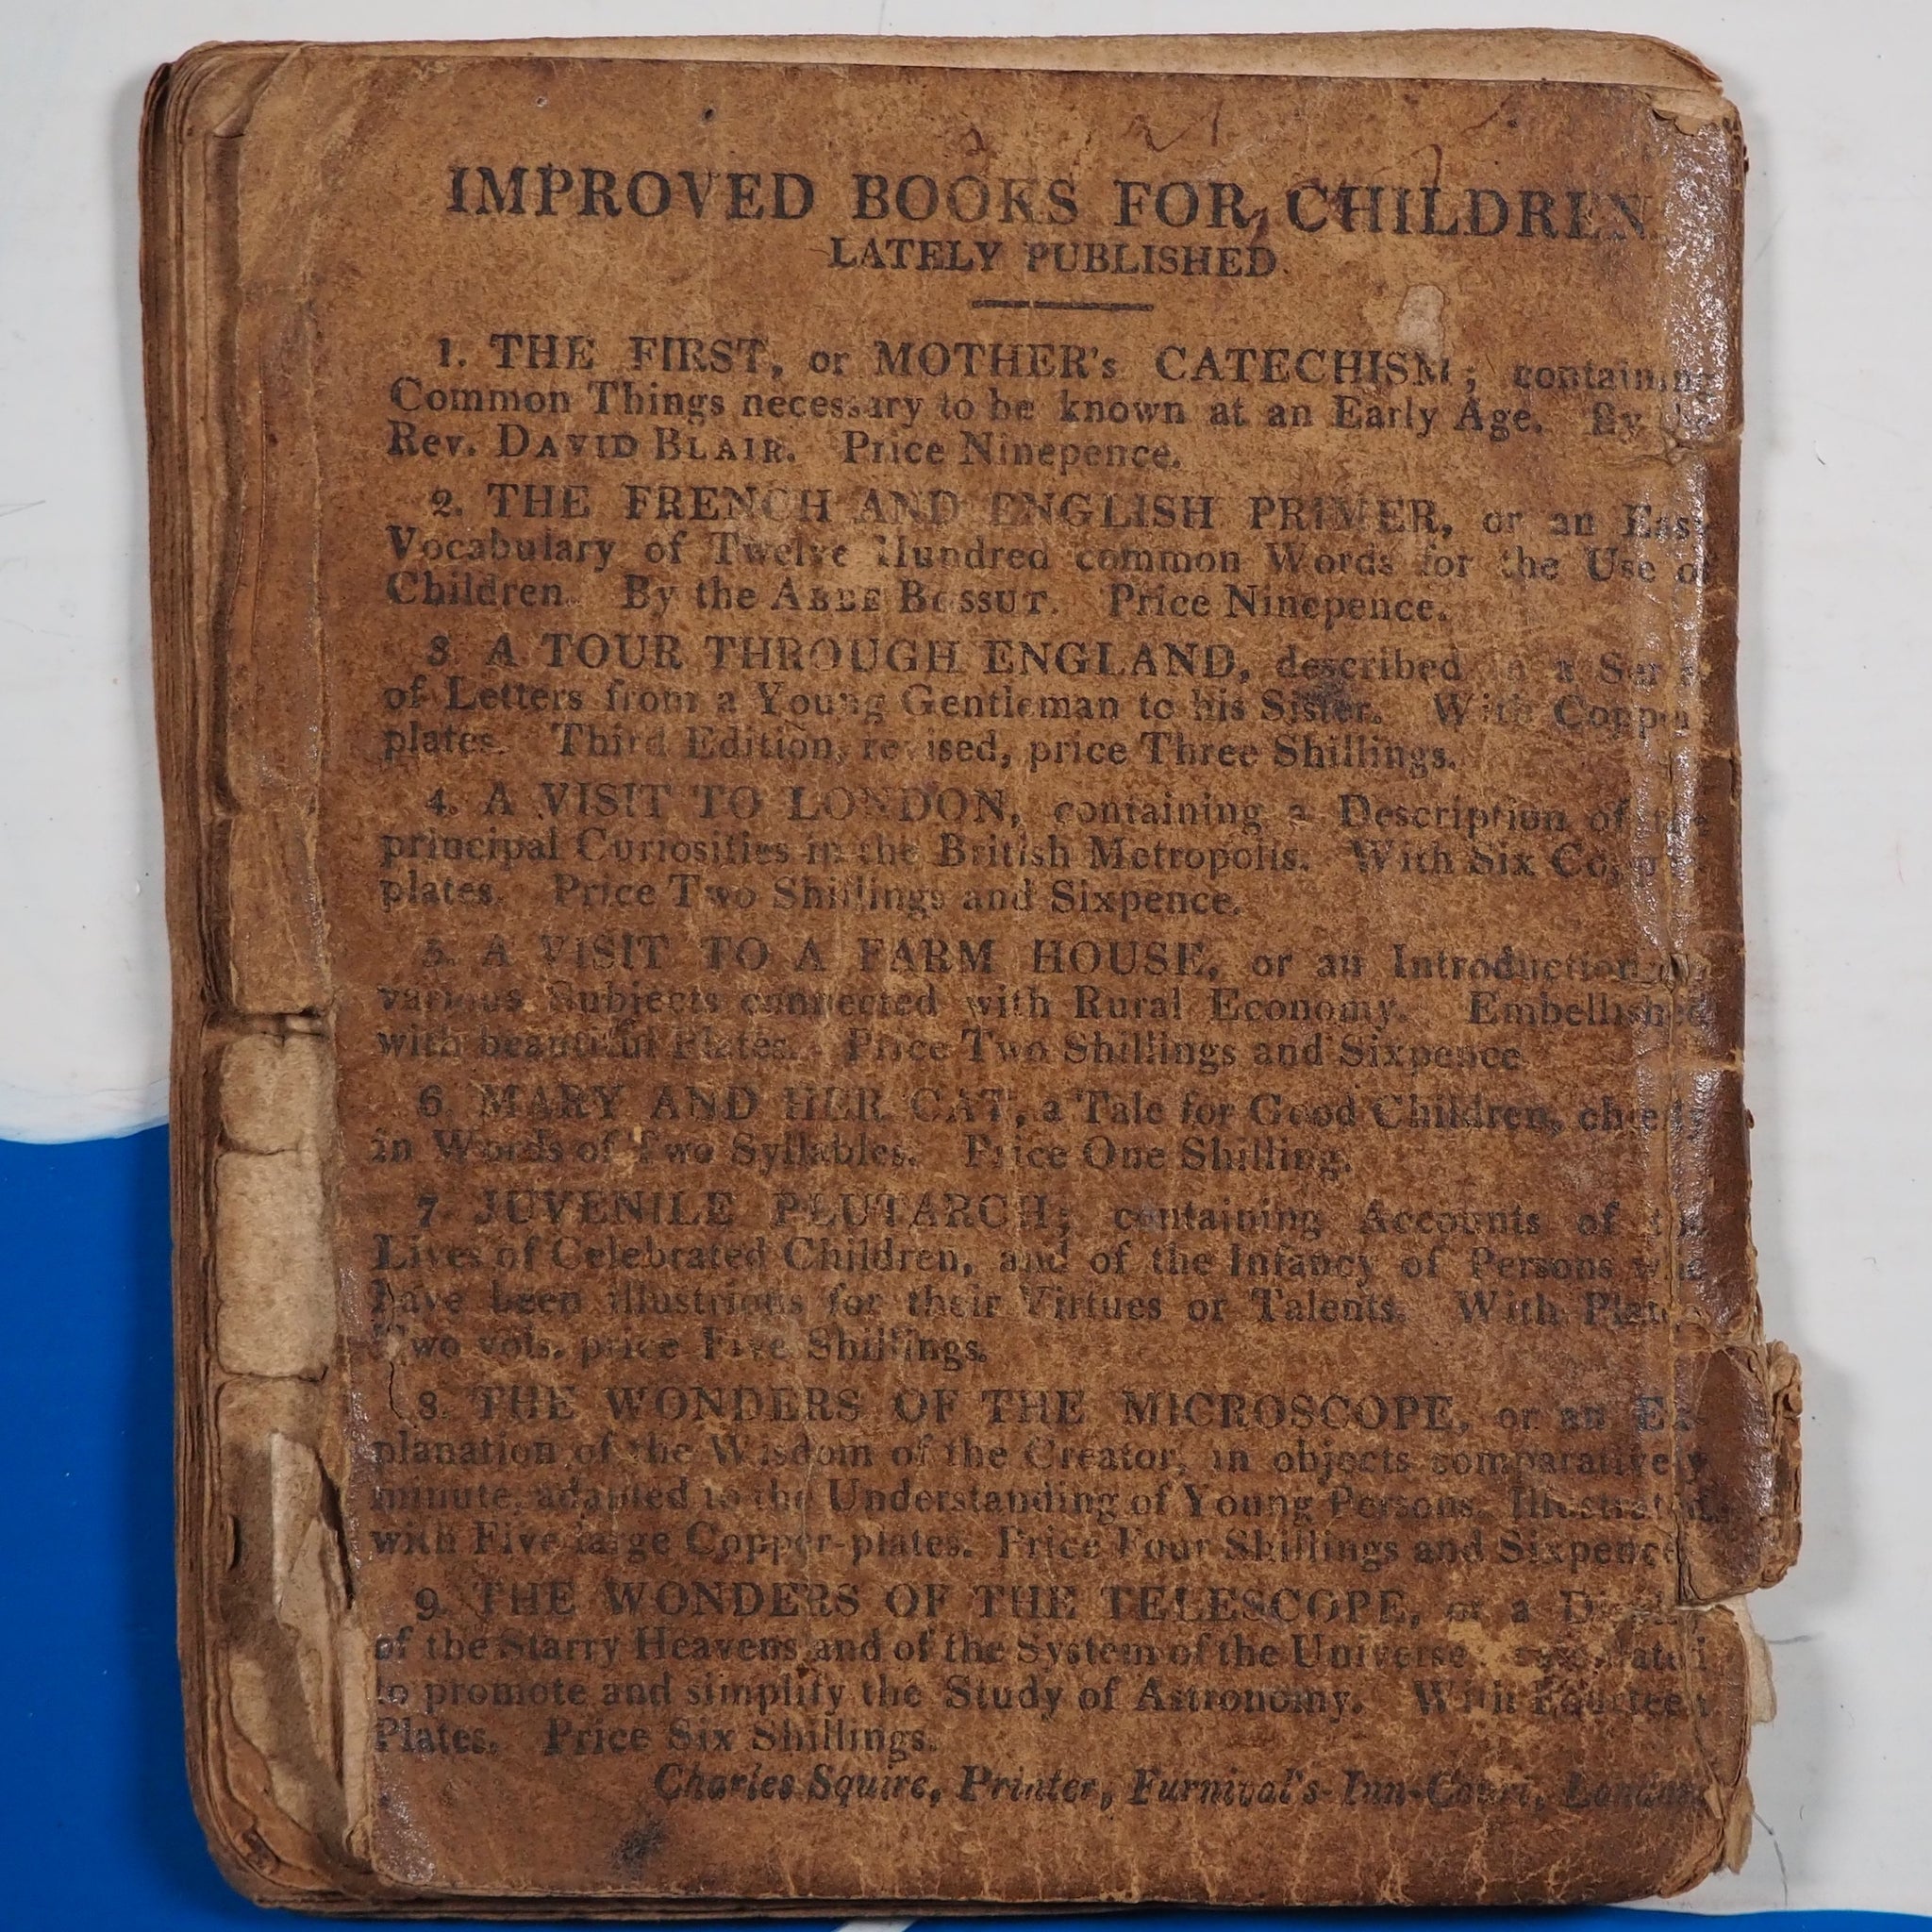 IMPROVED BOOKS FOR CHILDREN
LATELY PUBLISHED.
1. THE FIRST, or MOTHER's CATECHISM; containing
Common Things necessary to be known at an Early Age. By the
Rev. DAVID BLAIR. Price Ninepence.
2. THE FRENCH AND ENGLISH PRIMER, or an Easy
Vocabulary of Twelve Hundred common Words for the Use of
Children. By the ABBE BOSSUT. Price Ninepence.
3. A TOUR THROUGH ENGLAND, described in a Series
of Letters from a Young Gentleman to his Sister. With Copper
plates. Third Edition, revised, price Three Shillings.
4. A VISIT TO LONDON, containing a Description of the
principal Curiosities in the British Metropolis. With Six Copper-
plates. Price Two Shillings and Sixpence.
5. A VISIT TO A FARM HOUSE, or an Introduction to
various Subjects connected with Rural Economy. Embellished
with beautiful Plates. Price Two Shillings and Sixpence
6. MARY AND HER CAT, a Tale for Good Children, chiefly
in Words of Two Syllables. Price One Shilling.
7. JUVENILE PLUTARCH; containing Accounts of the
Lives of Celebrated Children, and of the Infancy of Persons who
have been illustrious for their Virtues or Talents. With Plates
Two vols. price Five Shillings.
8. THE WONDERS OF THE MICROSCOPE, or an Ex-
planation of the Wisdom of the Creator, in objects comparatively
minute, adapted to the Understanding of Young Persons. Illustrated
with Five large Copper-plates. Price Four Shillings and Sixpence
9. THE WONDERS OF THE TELESCOPE, or a
of the Starry Heavens and of the System of the Universe
to promote and simplify the Study of Astronomy. With Fourteen
Plates. Price Six Shillings.
Charles Squire, Printer, Furnival's-Inn-Court, London.